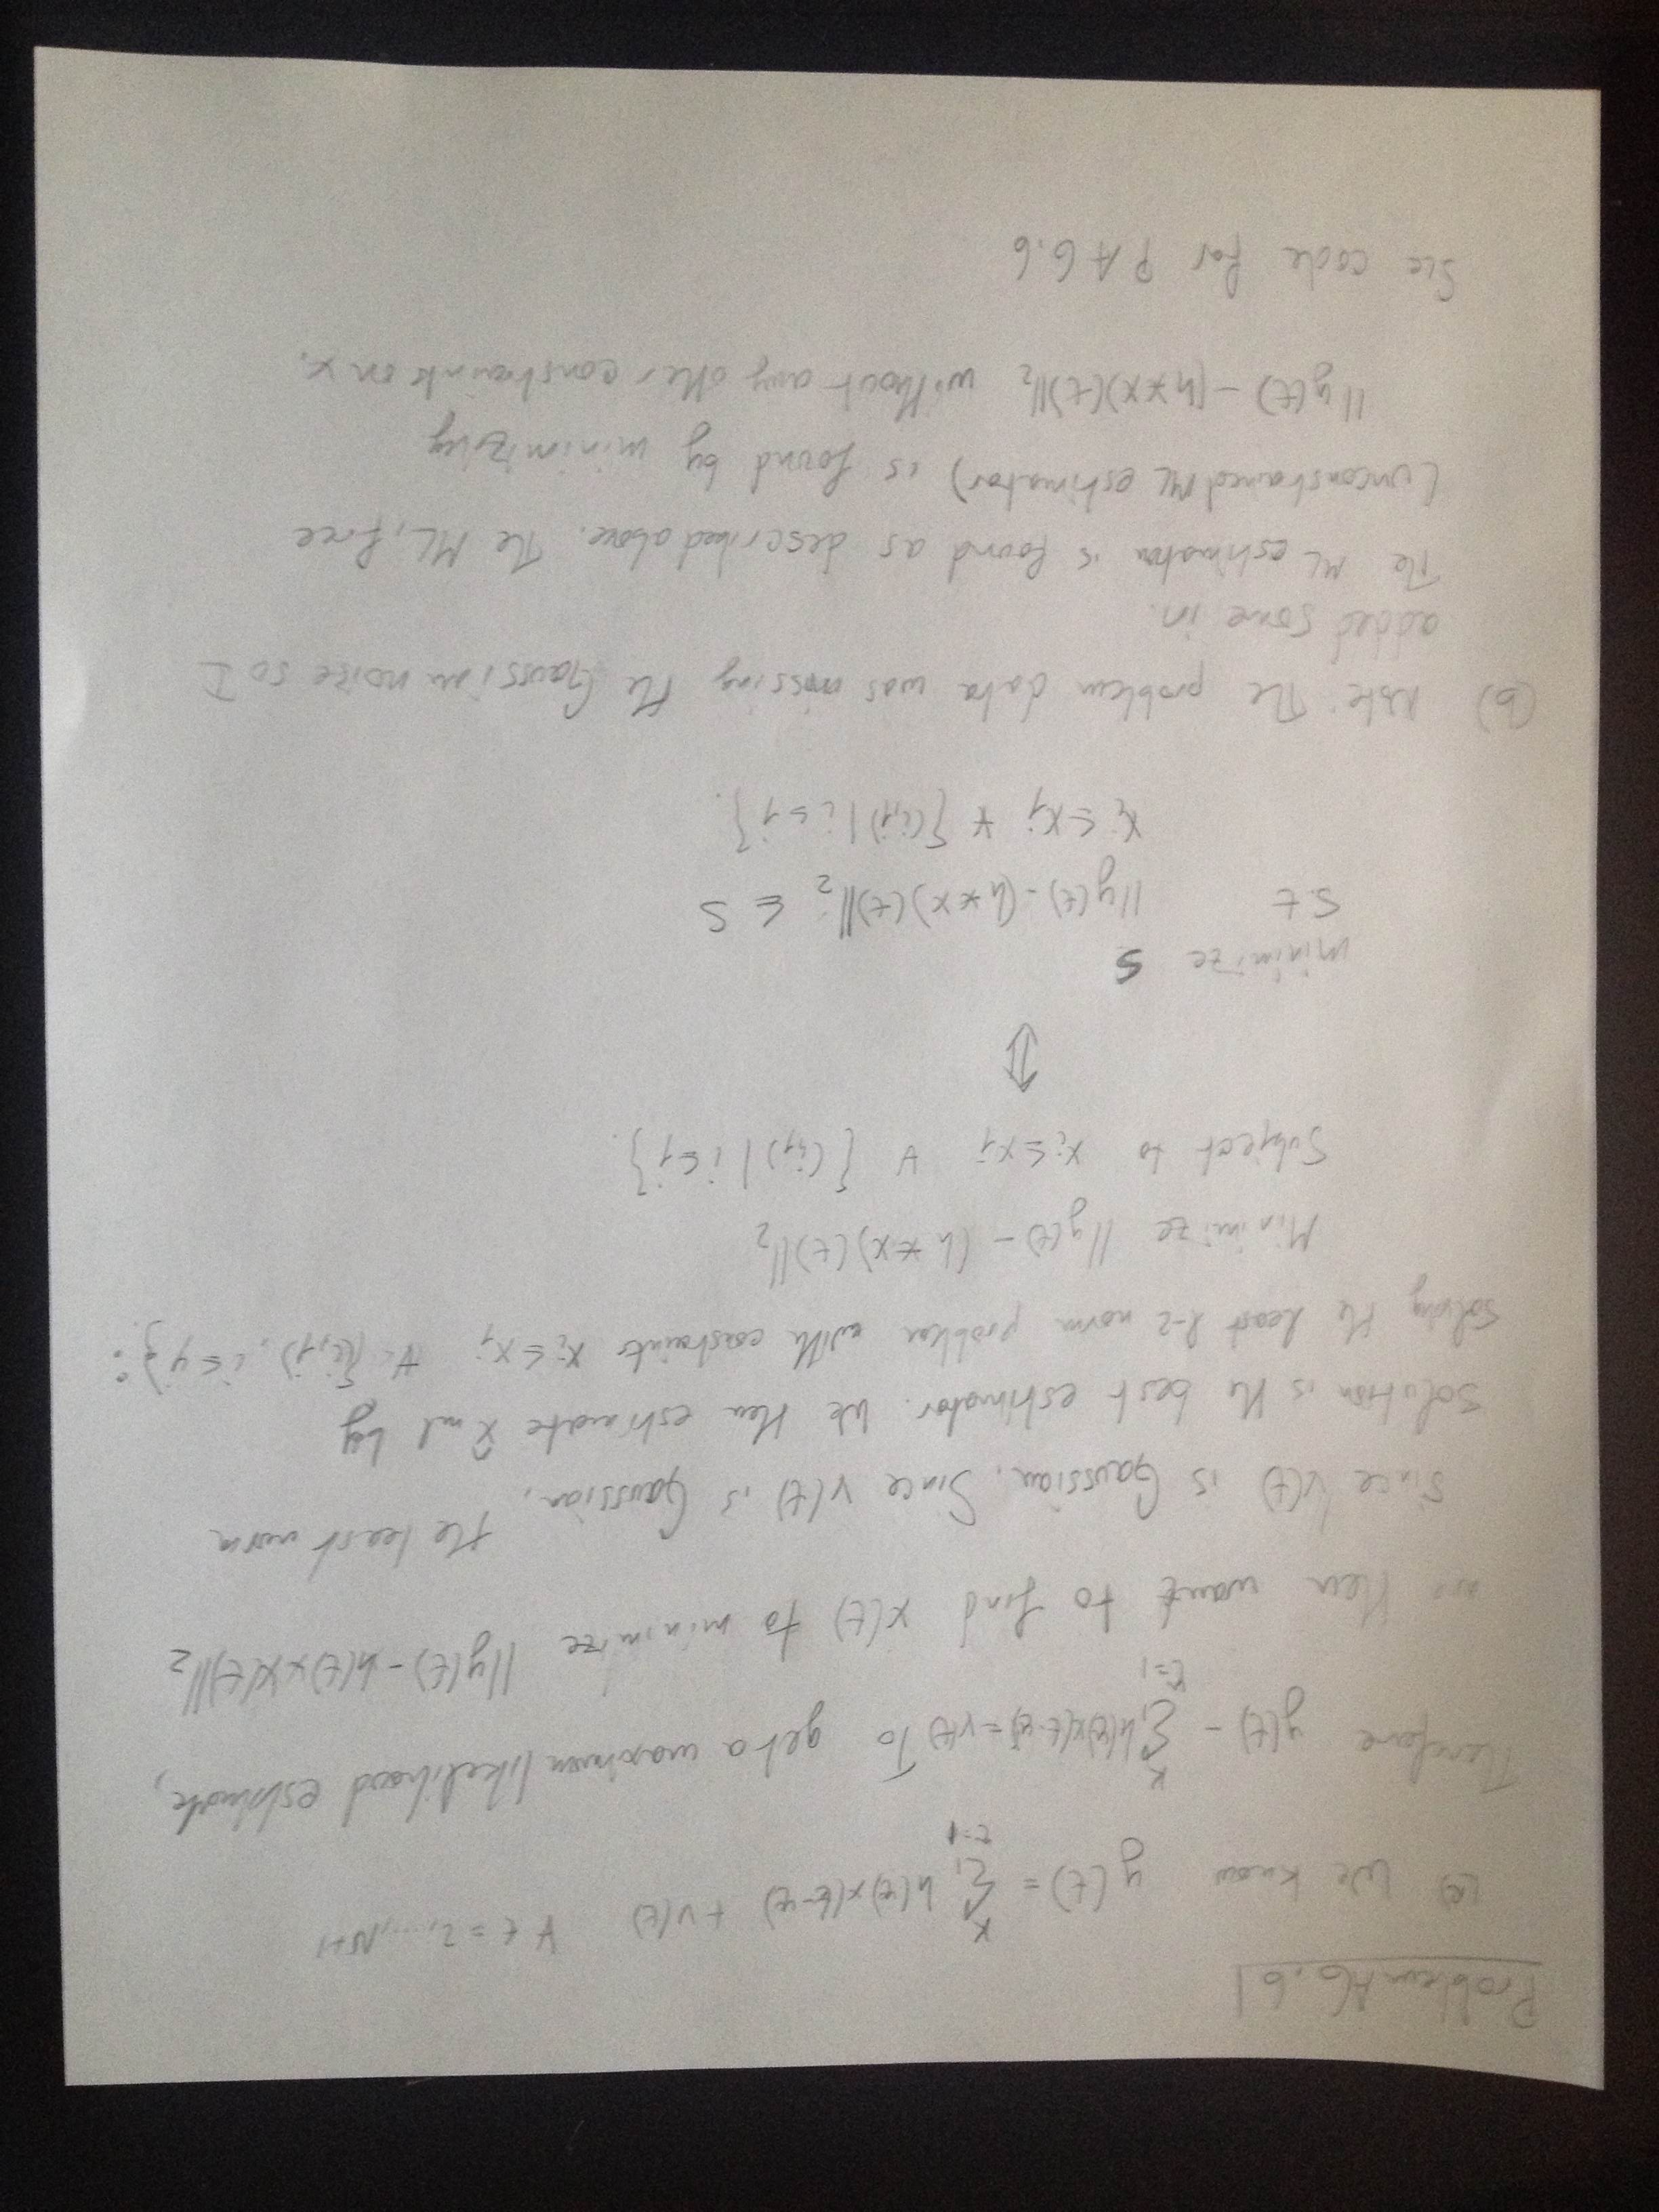 Problem A6.6
(a) We know y(t) = k Σ τ=1 h(τ)x(t-τ) + v(t) ∀ t = 2,...,N+1
Therefore y(t) - k Σ τ=1 h(τ)x(t-τ) = v(t) To get a maximum likelihood estimate,
we then want to find x(t) to minimize ||y(t) - h(t)*x(t)||₂
since v(t) is Gaussian. Since v(t) is Gaussian, the least norm
solution is the best estimator. We then estimate x̂ml by
solving the least l-2 norm problem with constraints xi ≤ xj ∀ {(i,j), i ≤ j}:
Minimize ||y(t) - (h*x)(t)||₂
Subject to xi ≤ xj ∀ {(i,j) | i ≤ j}.
⇕
minimize S
s.t ||y(t) - (h*x)(t)||₂ ≤ S
xi ≤ xj ∀ {(i,j) | i ≤ j}.
(b) Note: The problem data was missing the Gaussian noise so I
added some in.
The ML estimator is found as described above. The ML, free
(unconstrained ML estimator) is found by minimizing
||y(t) - (h*x)(t)||₂ without any other constraints on x.
See code for PA6.6